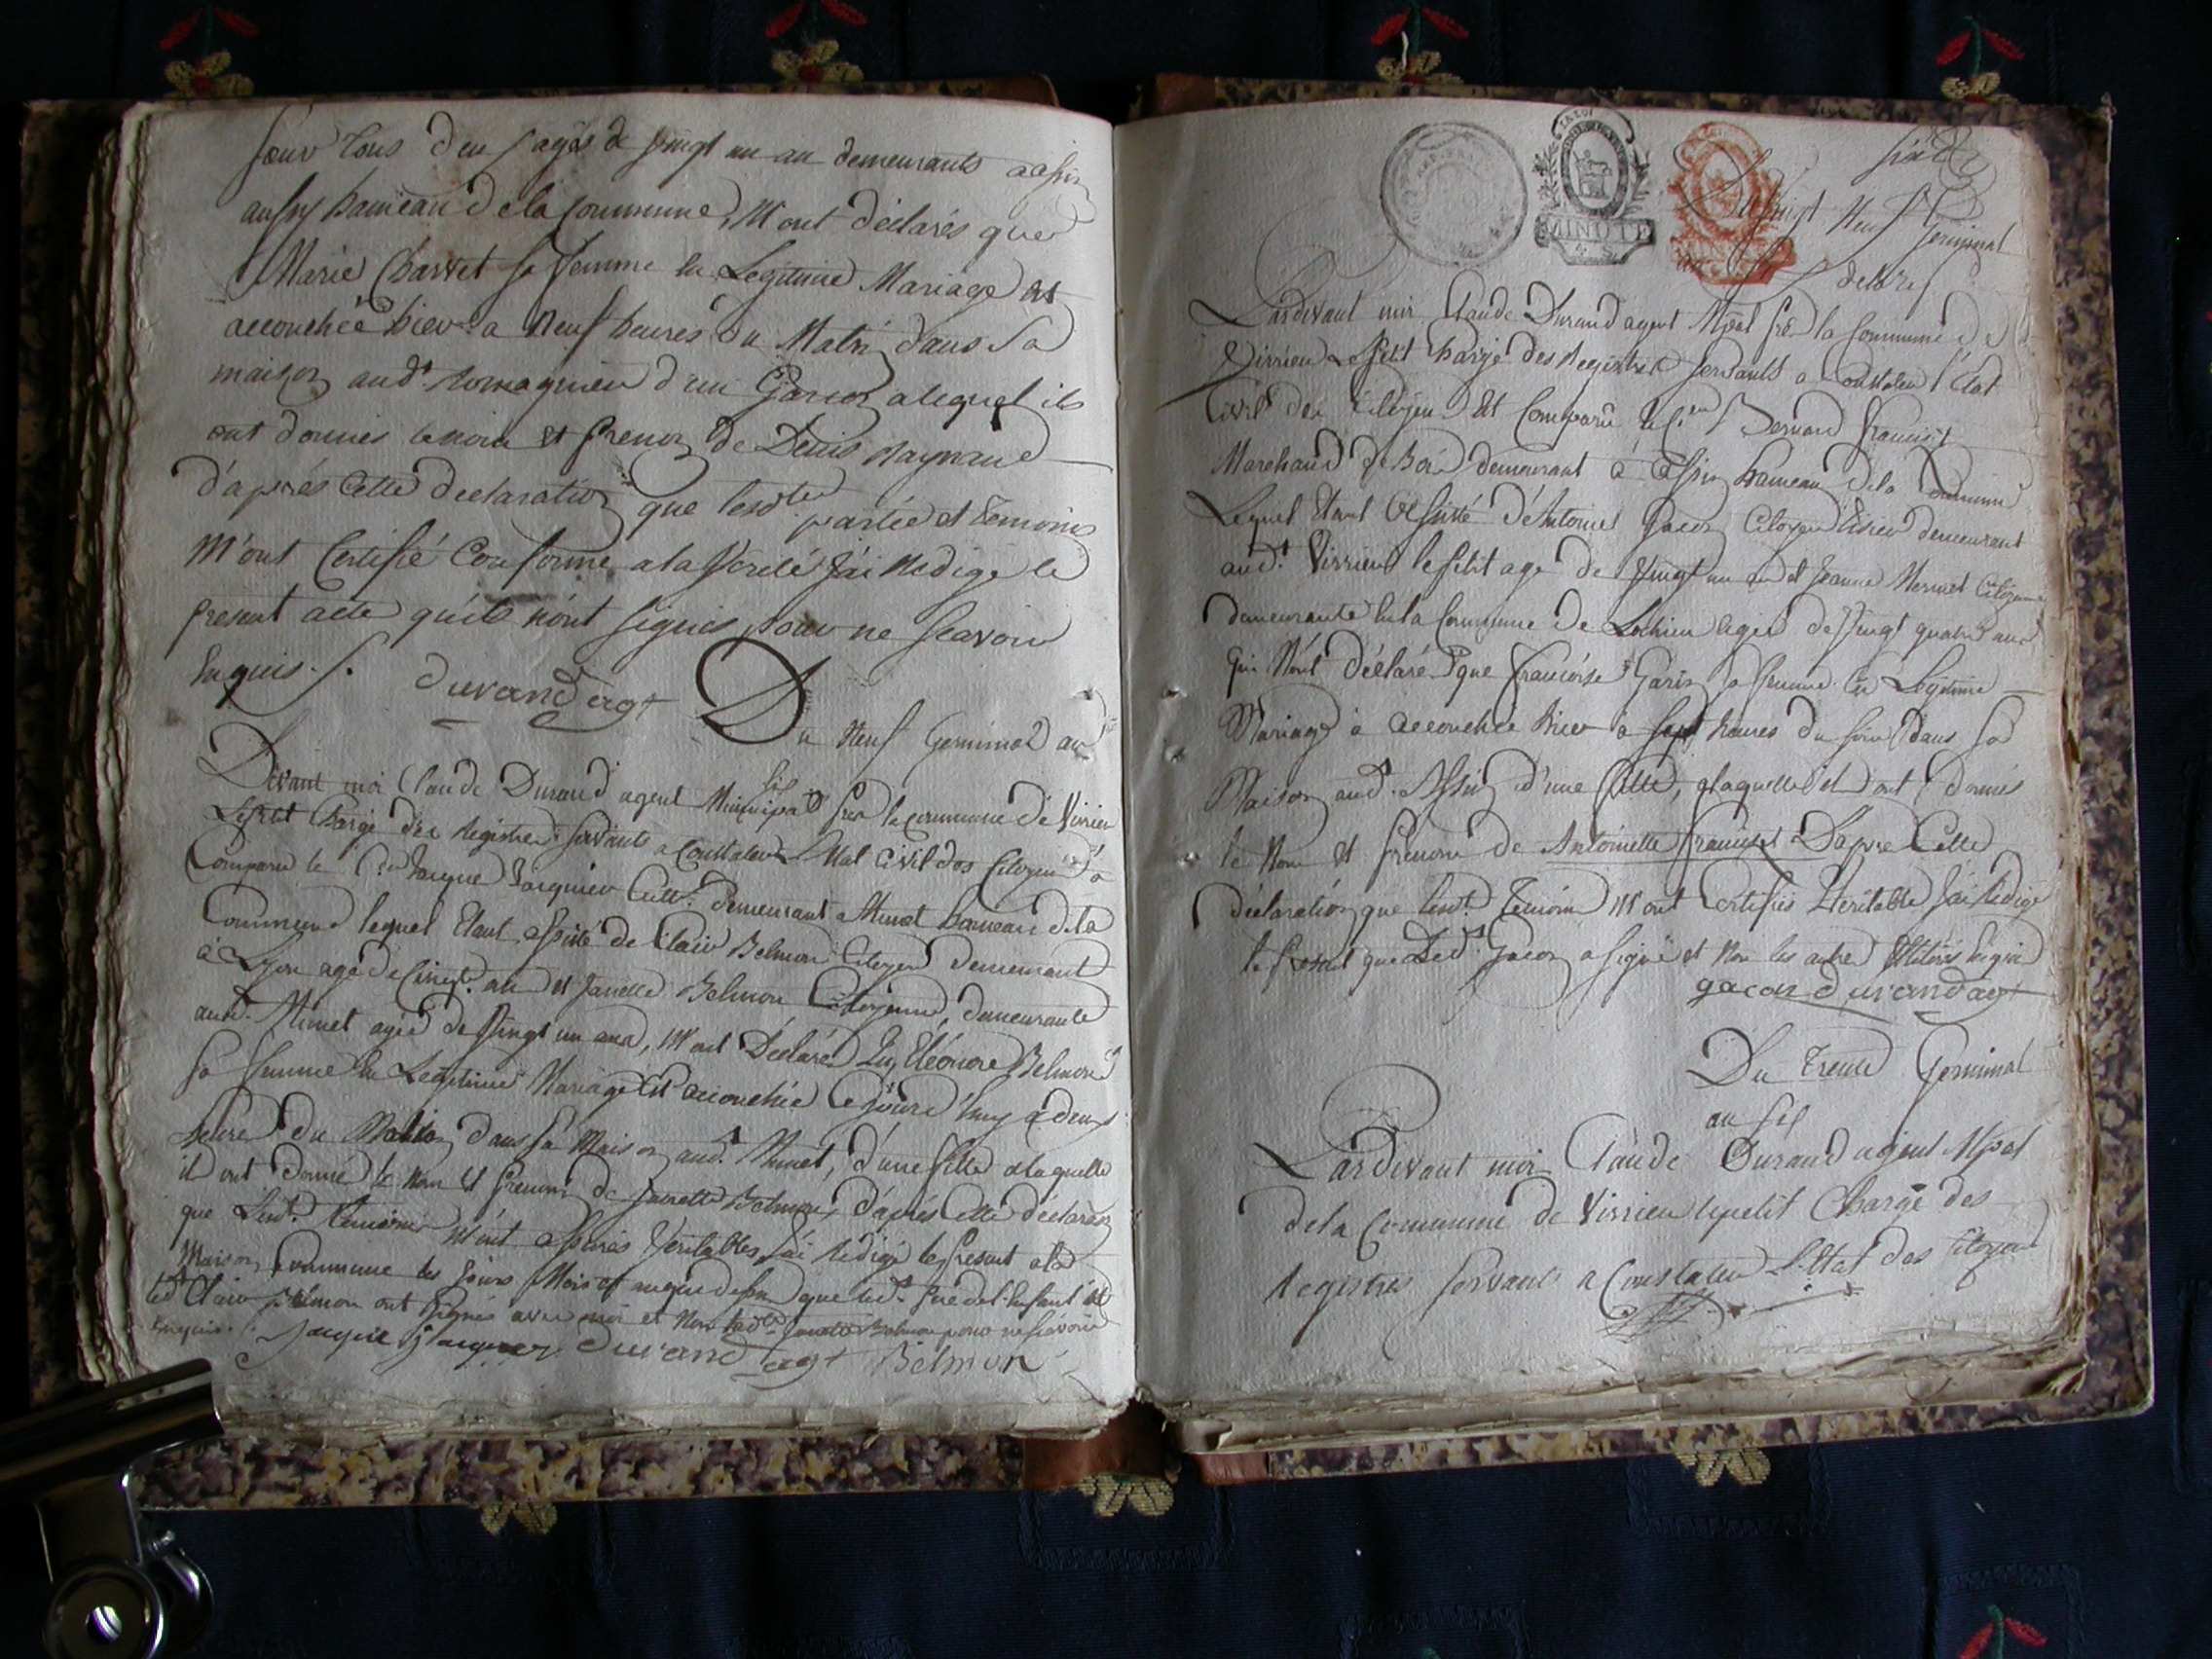 sœur tous deux agés de vingt un an demeurants a assin
aussy hameau de la Commune, M'ont déclarés que
Marie Charvet sa femme en Legitime Mariage est
accouchéé hier a Neuf heures du Matin dans sa
maison aud.t Romagnieu d'un Garcon alequel ils
ont donnés le nom et prenon de Denis Raynaud
d'aprés Cette declaration que lesd.tes partie et temoins
M'ont Certifié Conforme a la Vérité J'ai Redigé le
present acte qu'ils n'ont signés pour ne scavoir
Enquis ./.
durand agt
Du Neuf Germinal an
six
Devant moi Claude Durand agent Municipal pour la commune de Virieu
Lepetit Chargé des Registres servants a Constater l'Etat Civil des Citoyens a
Comparu le C.en Jacque Jacquier Cult.r demeurant a Munet hameau de la
Commune lequel Etant assisté de Clair Belmon Citoyen demeurant
à Lyon agé de Cinq.te ans et Janette Belmon Citoyenne demeurante
aud. Munet agée de Vingt un ans, M'ont Déclarés Eléonore Belmon
sa femme En Legitime Mariage Est accouchée Ce jourd'huy a deux
heures du Matin dans sa Maison aud.t Munet, d'une fille a laquelle
il ont donné le Nom et prenom de Janette Belmon, d'aprés Cette déclaration
que Lesd. temoins M'ont assurés Veritables, J'ai Redigé le present a la
Maison Commune les jours Mois et an que dessus que led.t Pere de l'enfant et
led.t Clair Belmon ont signés avec moi et Non lad.te Janette Belmon pour ne scavoir
Enquis ./. Jacque Jacquier durand agt Belmon
LA LOI
MINUTE
six
Du Vingt Neuf Germinal
Pardevant moi Claude Durand agent Mpal pour la Commune de
Virrieu Lepetit Chargé des Registres servants a Constater l'Etat
Civil des Citoyens Est Comparu le C.en Bernard francist
Marchand de Bois demeurant à assin hameau de la Commune
Lequel Etant assisté d'Antoine Gacon Citoyen demeurant
aud.t Virrieu lepetit agé de Vingt un an et Jeanne Mermet Citoyenne
demeurante En la Commune de Lochieu agée de Vingt quatre ans
qui M'ont déclaré que francoise Garin sa femme En Légitime
Mariage à accouchée hier a sept heures du soir dans sa
Maison aud. assin d'une fille, a laquelle il ont donnés
le Nom et prenom de Antoinette francist D'apré Cette
déclaration que lesd.t Temoins M'ont Certifiés Véritable J'ai Redigé
le present que Led.t Gacon a signé et Non les autres
gacon durand agt
Du Trente Germinal
an six
Pardevant moi Claude Durand agent Mpal
de la Commune de Virrieu lepetit Chargé des
Registres servants a Constater L'Etat des Citoyens